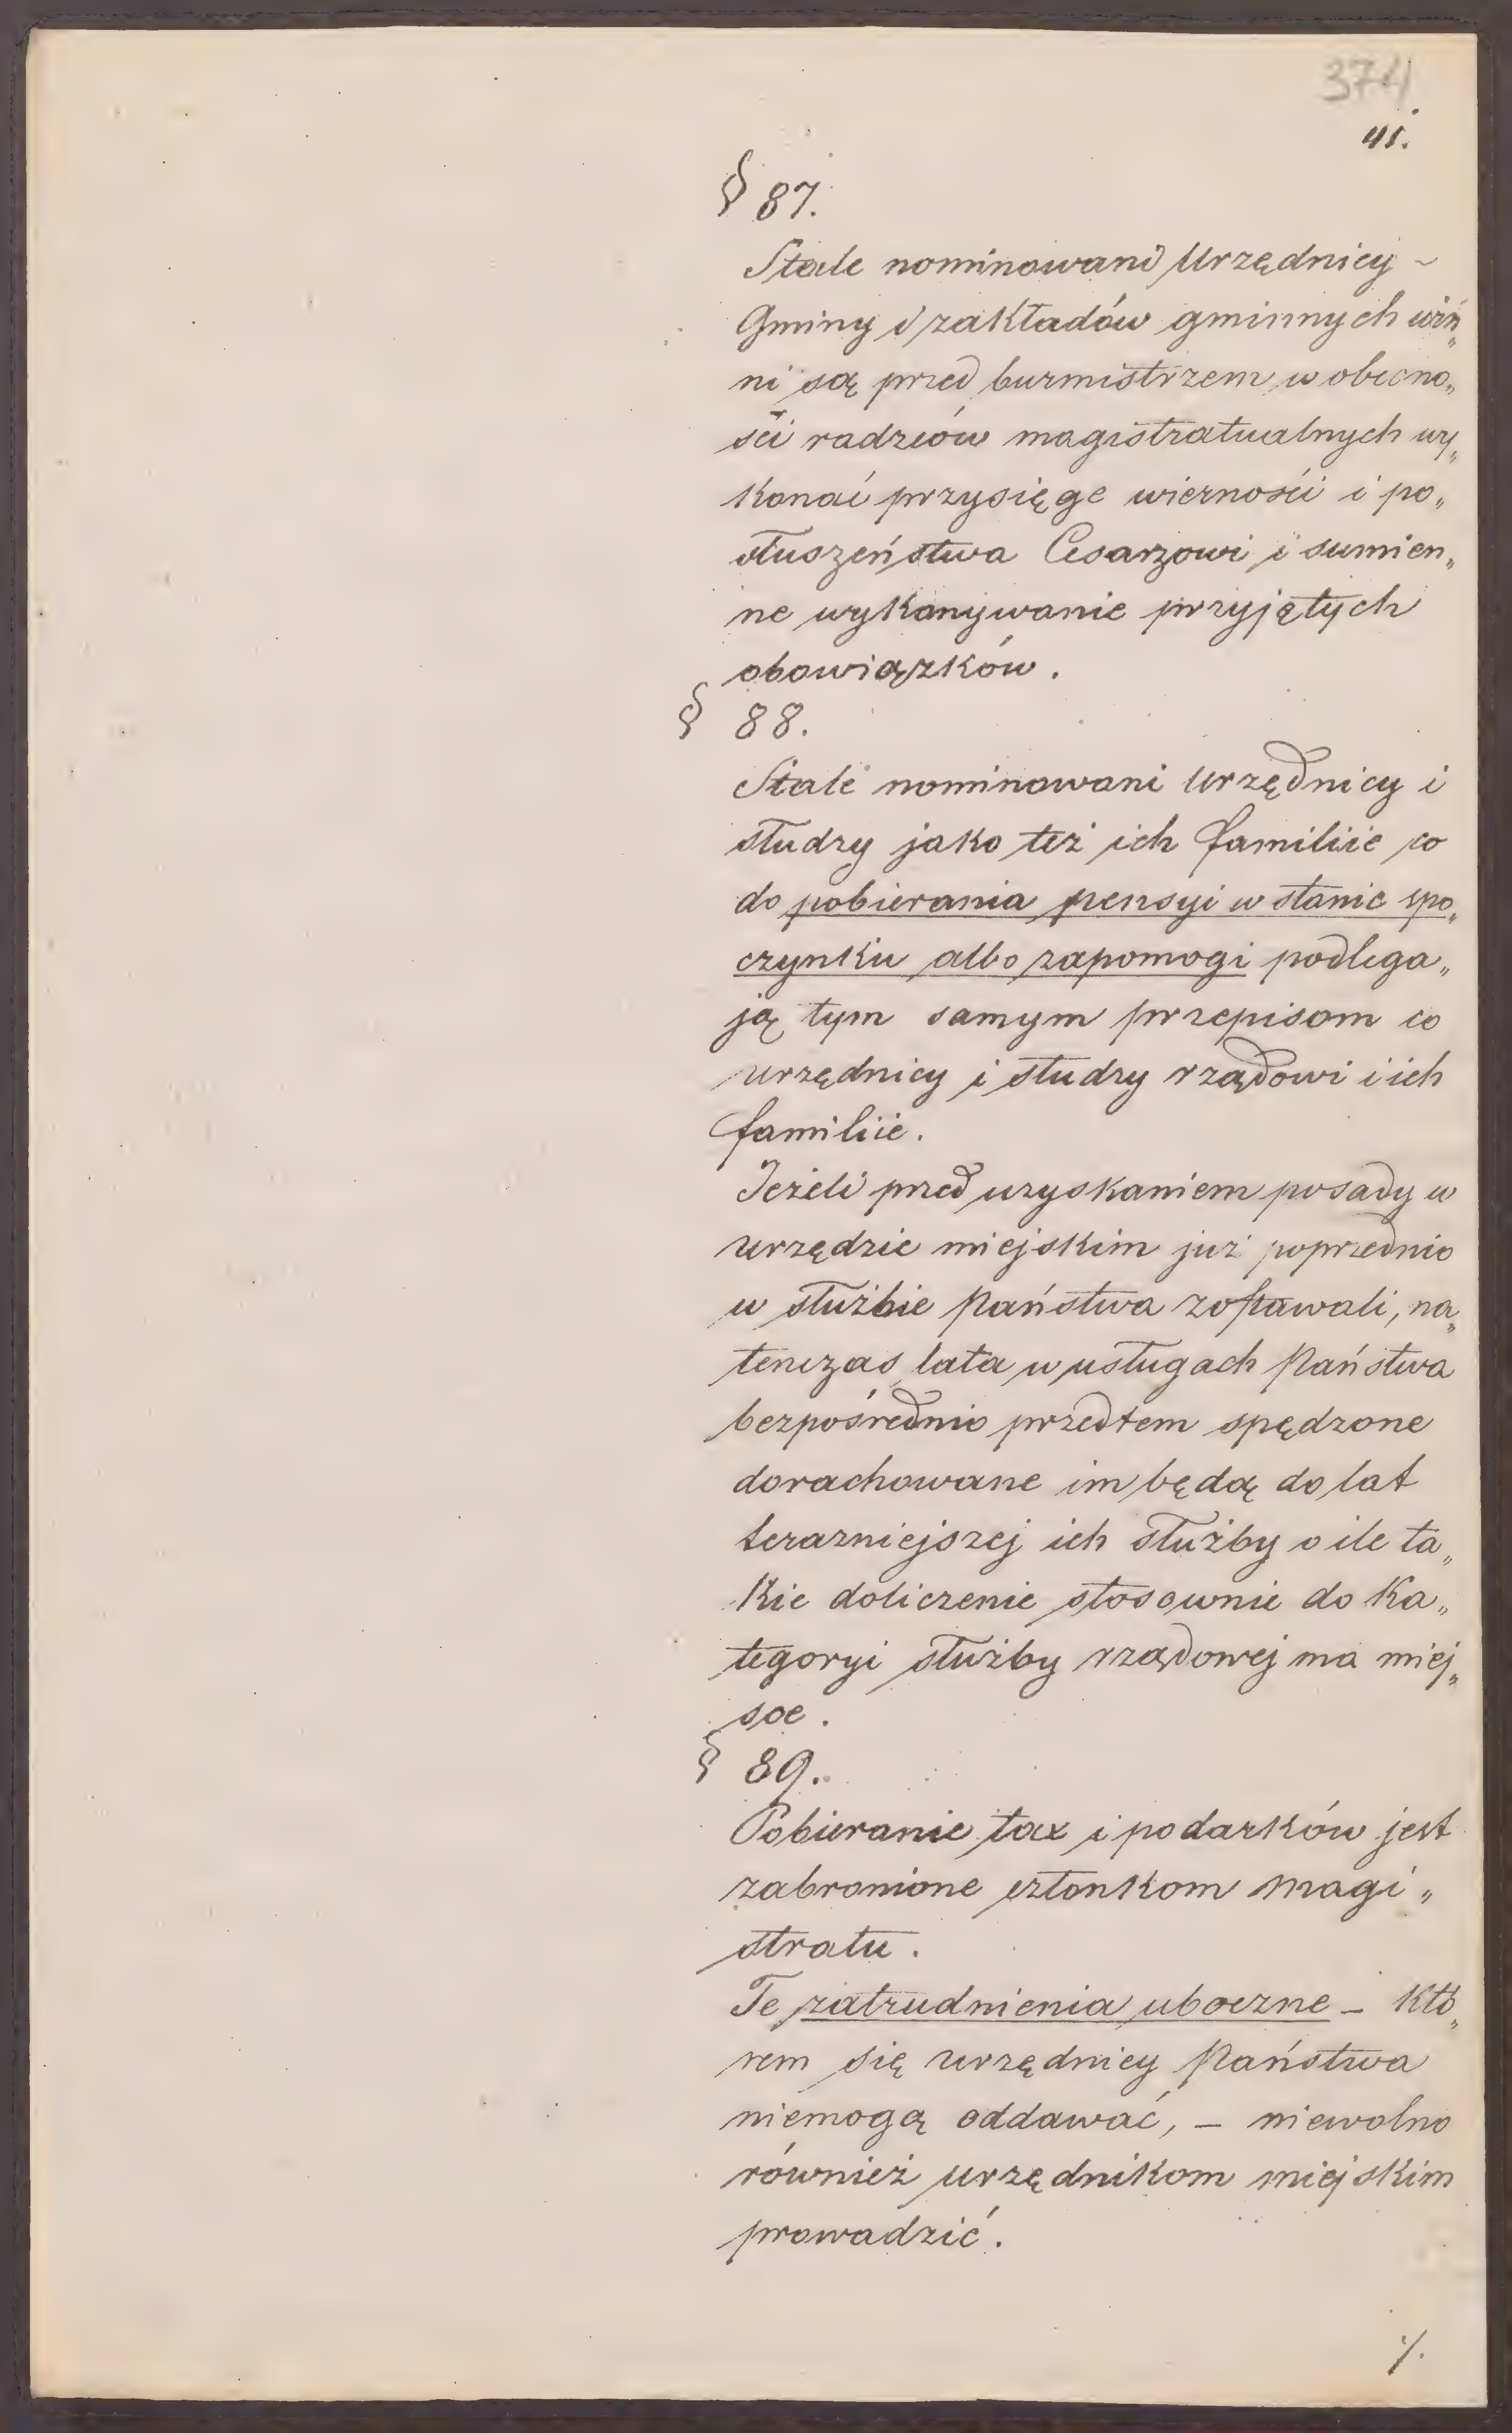 374
41.
§ 87.
Stale nominowani Urzędnicy -
Gminy i zakładów gminnych wiń„
ni są przed burmistrzem w obecno„
ści radzców magistratualnych wy„
konać przysięgę wierności i po„
słuszeństwa Cesarzowi i sumien„
ne wykonywanie przyjętych
obowiązków.
§ 88.
Stale nominowani urzędnicy i
słudzy jako też ich familiie co
do pobierania pensyi w stanie spo„
czynku albo zapomogi podlega„
ją tym samym przepisom co
urzędnicy i słudzy rządowi i ich
familiie.
Jeżeli przed uzyskaniem posady w
urzędzie miejskim już poprzednio
w służbie Państwa zostawali, na„
tenczas lata w usługach Państwa
bezpośrednio przedtem spędzone
dorachowane im będą do lat
terazniejszej ich służby o ile ta„
kie doliczenie stosownie do ka„
tegoryi służby rządowej ma miej„
sce.
§ 89.
Pobieranie tax i podarków jest
zabronione członkom Magi„
stratu.
Te zatrudnienia uboczne - któ„
rem się urzędnicy Państwa
niemogą oddawać, - niewolno
również urzędnikom miejskim
prowadzić.
./.